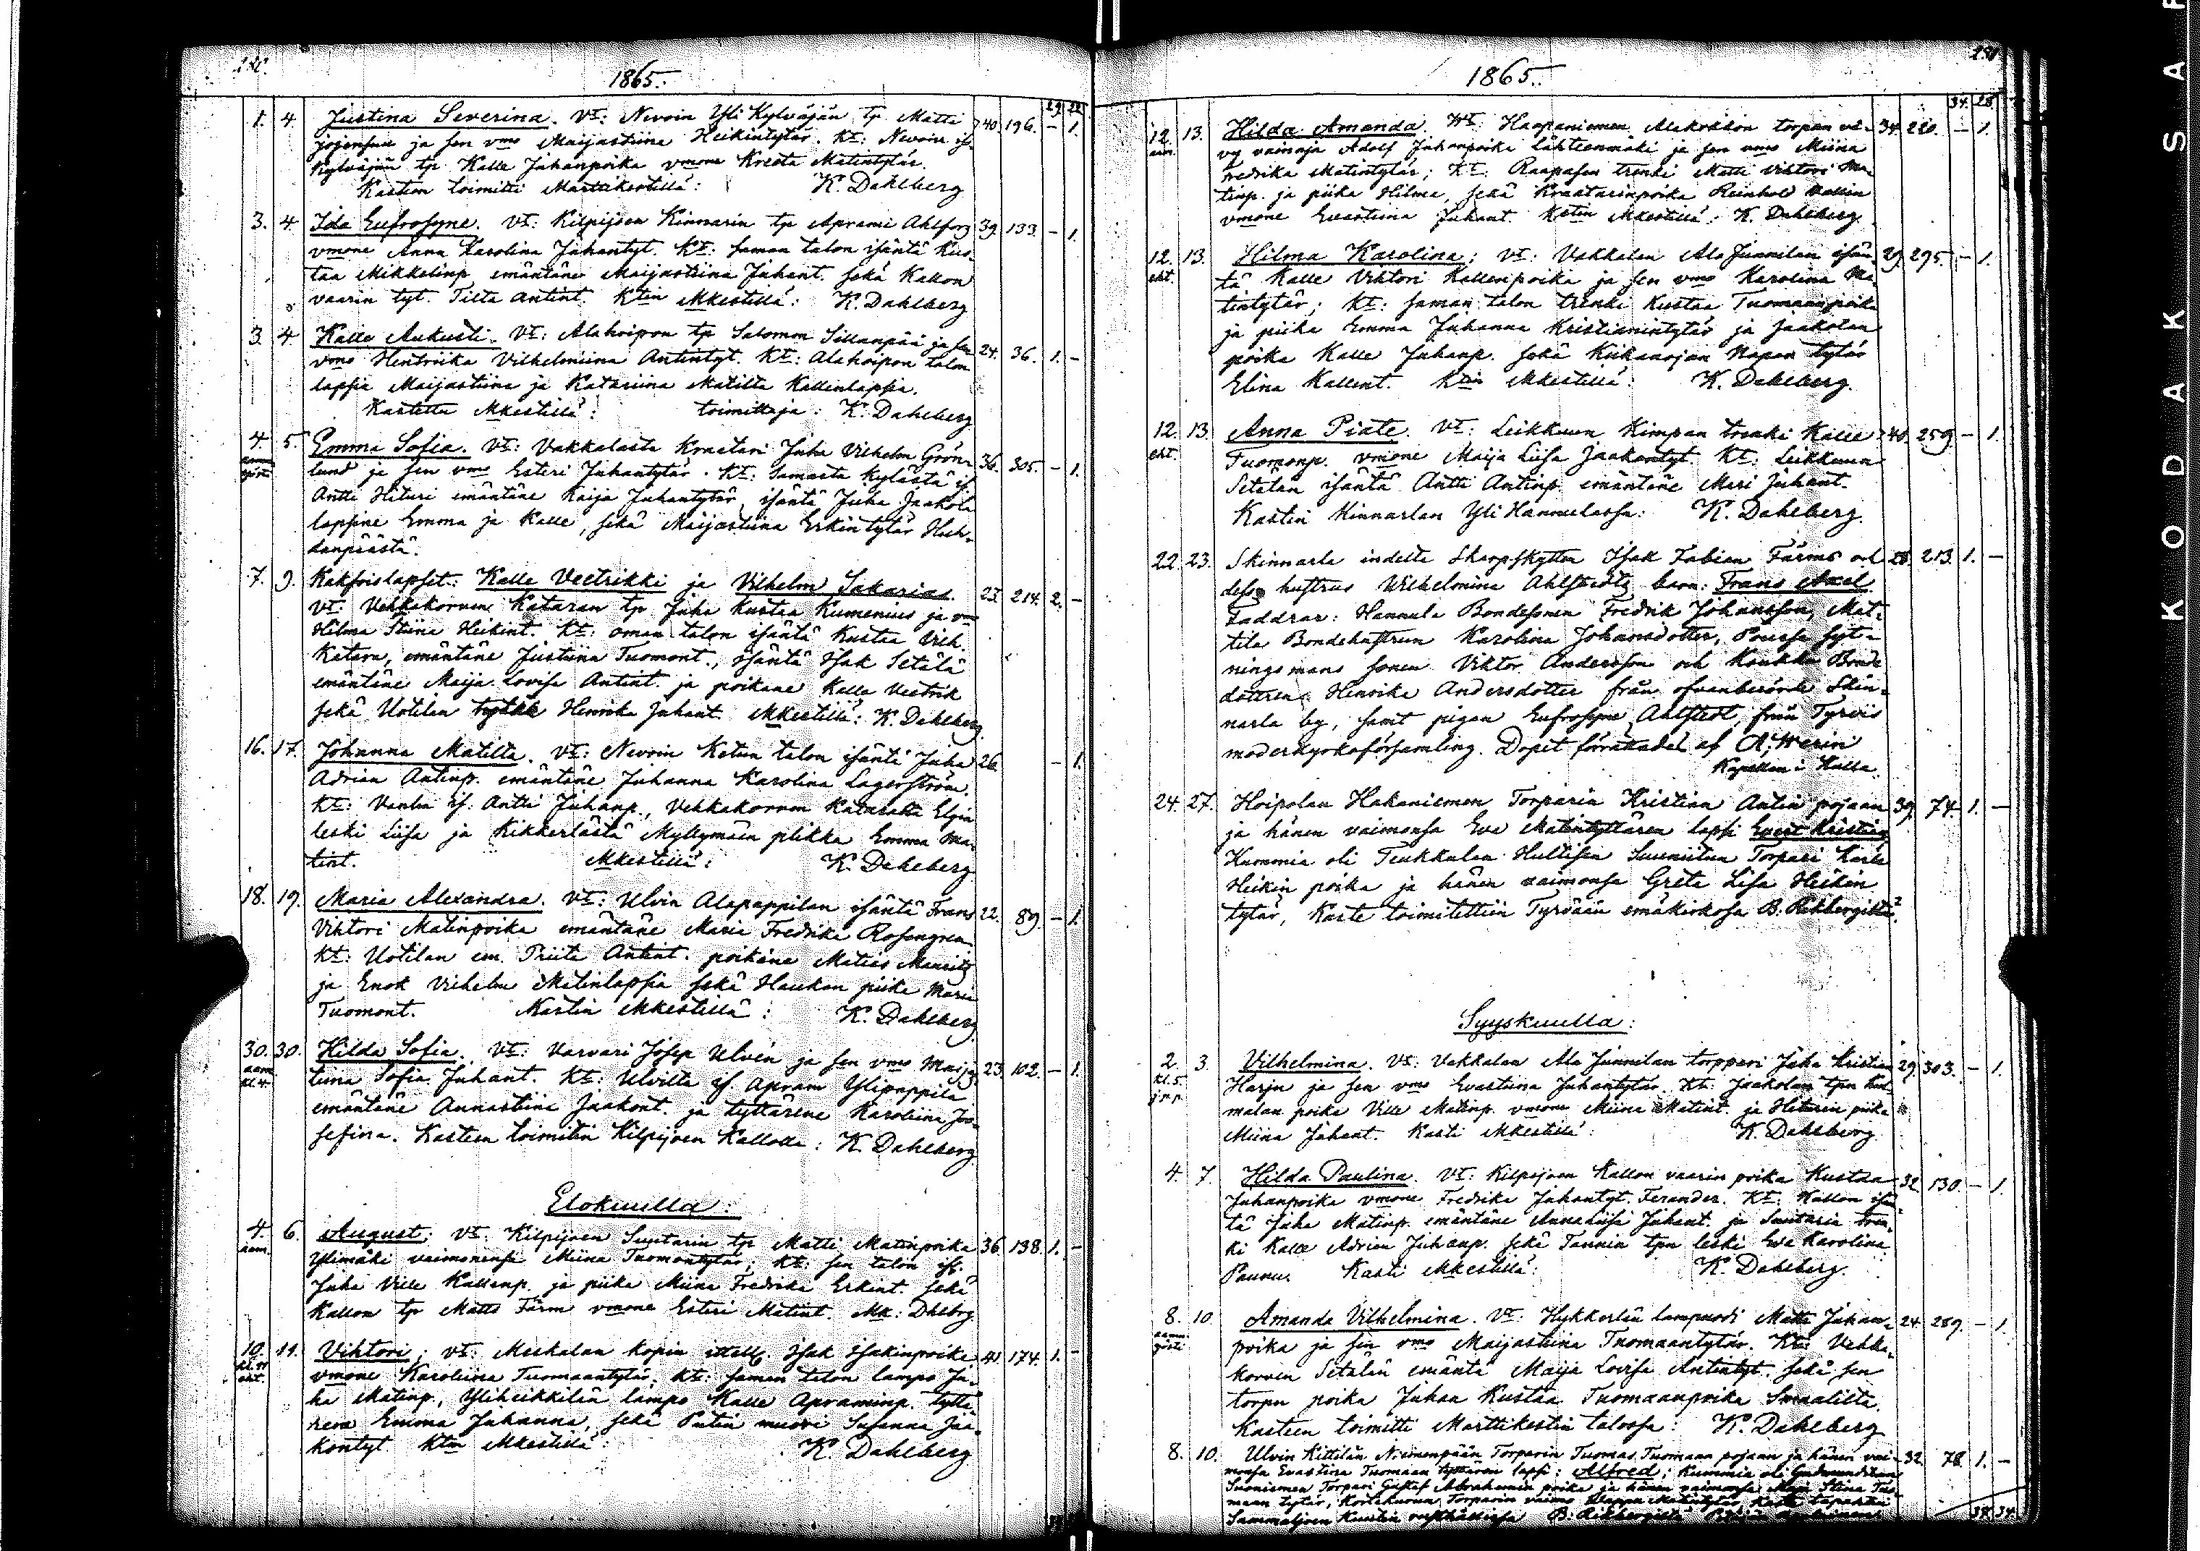 1865.
1. 4. Justina Severina. Vt: Nevoin Yli Kylväjän tp Matti 40 196. – 1.
ja sen vmo Maijastiina Heikintytär. Kt: Nevoin is.
Kylväjän tp Kalle Juhanpoika vmone Kreeta Matintytär.
Kasteen toimitti Marttikestillä: K. Dahlberg
3. 4. Ida Eufrosyne. Vt: Kilpijoen Kinnarin tp Aprami Ahlfors 39. 133. – 1.
vmone Anna Karolina Juhantyt. Kt: saman talon isäntä Kus-
taa Mikkelinp. emäntäne Maijastiina Juhant. sekä Kallon
vaarin tyt. Tilta Antint. Ktin Mkestillä: K. Dahlberg
3. 4. Kalle Aukusti. Vt: Alahoipon tp Salomon Sillanpää ja sen 24. 36. 1. –
vmo Hentriika Vilhelmiina Antintyt. Kt: Alahoipon talon
lapsia Maijastiina ja Katariina Matilta Kallenlapsia.
Kastetta Mkestillä: toimittaja: K. Dahlberg
4. 5. Emma Sofia. Vt: Vakkalasta Kraatari Juha Vilhelm Grön- 36. 305. – 1.
lund ja sen vmo Esteri Juhantytär. Kt: Samasta kylästä is
Antti Hituri emäntäne Kaija Juhantytär, isäntä Juha Jaakola
lapsine Emma ja Kalle, sekä Maijastiina Erkintytär Huh-
danpäästä.
7. 9. Kakfoislapset: Kalle Veetrikki ja Vilhelm Sakarias. 23. 214. 2. –
Vt: Vehkakorven Kataran tp Juha Kustaa Kumenius ja vm
Hilma Stiina Heikint. Kt: oman talon isäntä Kustaa Vilh.
Katara, emäntäne Justiina Tuomont., isäntä Isak Setälä
emäntäne Maija Lovisa Antint. ja poikane Kalle Veetrik
sekä Uotilan Henrika Juhant. Mkestillä: K. Dahlberg
16. 17. Johanna Matilta. Vt: Nevoin Ketun talon isäntä Juha 26. – 1.
Adrian Antinp. emäntäne Juhanna Karolina Lagerström.
Kt: Vanha is. Antti Juhanp., Vehkakorven Kataralta Elgin
leski Liisa ja Kikkerlästä Myllymäin plikka Emma Ma-
tint. Mkestillä: K. Dahlberg
18. 19. Maria Alexandra. Vt: Ulvin Alapappilan isäntä Frans 22. 89. – 1.
Vihtori Matinpoika emäntäne Maria Fredrika Rosengren.
Kt: Uotilan em. Priita Antint. poikine Matias Mauritz
ja Enok Vilhelm Matinlapsia sekä Haukan piika Maria
Tuomont. Kastin Mkestillä: K. Dahlberg
30. 30. Hilda Sofia. Vt: Varvari Josep Ulvén ja sen vmo Maija 23. 102. – 1.
tiina Sofia Juhant. Kt: Ulvilta is. Apram Ylipappila
emäntäne Annastiina Jaakont. ja tyttärene Karoliina Jo-
sefina. Kasteen toimitin Kilpijoen Kallolla: K. Dahlberg
Elokuulla:
4. 6. August. Vt: Kilpijoen Suutarin tp Matti Matinpoika 36. 138. 1. –
Ylimäki vaimonensa Miina Tuomontytär; Kt: sen talon is.
Juha Ville Kallenp. ja piika Miina Fredrika Erkint. sekä
Kallon tp Matts Färm vmone Esteri Matint. Mk: Dhlbrg
10. 11. Vihtori; Vt: Meskalan kopin itsell. Isak Isakinpoika 41. 174. 1. –
vmone Karoliina Tuomaantytär. Kt: saman talon lampo Ju-
ha Matinp., Yliheikkilän lampo Kalle Apraminp. tyttä-
rene Emma Juhanna, sekä Putin muori Susanna Jaa-
kontyt. Ktin Mkestillä: K. Dahlberg
1865.
12. 13. Hilda Amanda. Vt: Haapaniemen Alakrätön torpan vä- 34. 220. – 1.
vy vainaja Adolf Juhanpoika Lähteenmäki ja sen vmo Miina
Fredrika Matintytär; Kt: Raapasen trenki Matti Vihtori Ma-
tinp. ja piika Hilma, sekä Kraatarinpoika Reinhold Vallin
vmone Evastiina Juhant. Kstin Mkestillä: K. Dahlberg
12. 13. Hilma Karolina; Vt: Vakkalan Ala Junnilan isän- 29. 295. – 1.
tä Kalle Vihtori Kallenpoika ja sen vmo Karolina Ma-
tintytär; Kt: saman talon trenki Kustaa Tuomaanpoika
ja piika Emma Juhanna Kristianintytär ja Jaakolan
poika Kalle Juhanp. sekä Kiikanojan Rapan tytär
Elina Kallent. Ktin Mkestillä: K. Dahlberg.
12. 13. Anna Piate. Vt: Leikkuun Kimpan trenki Kalle 40. 259. – 1.
Tuomonp. vmone Maija Liisa Jaakontyt. Kt: Leikkuun
Setälän isäntä Antti Antinp. emäntäne Mari Juhant.
Kastin Kinnarlan Yli Hannulassa: K. Dahlberg.
22. 23. Skinnarla indelta Skarpskytten Isak Fabian Färms och 28. 213. 1. –
dess hustrus Wilhelmina Ahlstedts barn: Frans Axel
Faddrar: Hannula Bondesonen Fredrik Johansson, Mat-
tila Bondehustrun Karolina Johansdotter, Poussa Syt-
ningsmans sonen Viktor Andersson och Koukku Bonde
dottren Henrika Andersdotter från ofvanberörde Skin-
narla by, samt pigan Eufrosyne Ahlstedt från Tyrvis
moderkyrkoförsamling. Dopet förrättades af A. Werin
Kapellan i Kiikka.
24. 27. Hoipolan Hakaniemen Torparin Kristian Antin pojan 39. 74. 1. –
ja hänen vaimonsa Eva Matintyttären lapsi Evert Kristian
Kummia oli Teukkalan Hullisen Suuniitun Torpari Karle
Heikin poika ja hänen vaimonsa Greta Lisa Heikin
tytär, Kaste toimitettiin Tyrvään emäkirkossa B. Rikbergiltä.
Syyskuulla:
2. 3. Vilhelmina. Vt: Vakkalan Ala Junnilan torppari Juha Kristian 29. 303. – 1.
Harju ja sen vmo Evastiina Juhantytär. Kt: Jaakolan tpn
malan poika Ville Matinp. vmone Miina Matint. ja Hiturin piika
Miina Juhant. Kasti Mkestillä: K. Dahlberg
4. 7. Hilda Paulina. Vt: Kilpijoen Kallon vaarin poika Kustaa 32. 130. – 1.
Juhanpoika vmone Fredrika Juhantyt. Ferander. Kt: Kallon isän-
tä Juha Matinp. emäntäne Annaliisa Juhant. ja Suutarin tren-
ki Kalle Adrian Juhanp. sekä Tannin tpn leski Eva Karolina
Paunu. Kasti Mkestillä: K. Dahlberg.
8. 10. Amanda Vilhelmina. Vt: Kykkerlän lampuodi Matti Juhan- 24. 289. – 1.
poika ja sen vmo Maijastiina Tuomaantytär. Kt: Vehka-
korven Setälän emäntä Maija Lovisa Antintyt. sekä sen
torpn poika Juhan Kustaa Tuomaanpoika Smaalilta.
Kasteen toimitti Marttikestin talossa: K. Dahlberg
8. 10. Ulvin Kittilän Niemenpään Torparin Tuomas Tuomaan pojan ja hänen vai- 32. 78. 1. –
monsa Evastina Tuomaan tyttären lapsi: Alfred; Kummia oli
Suoniemen Torpari Gustaf Abrahamin poika ja hänen vaimonsa Maja Stina Tuo-
maan tytär,
KODAK SAF